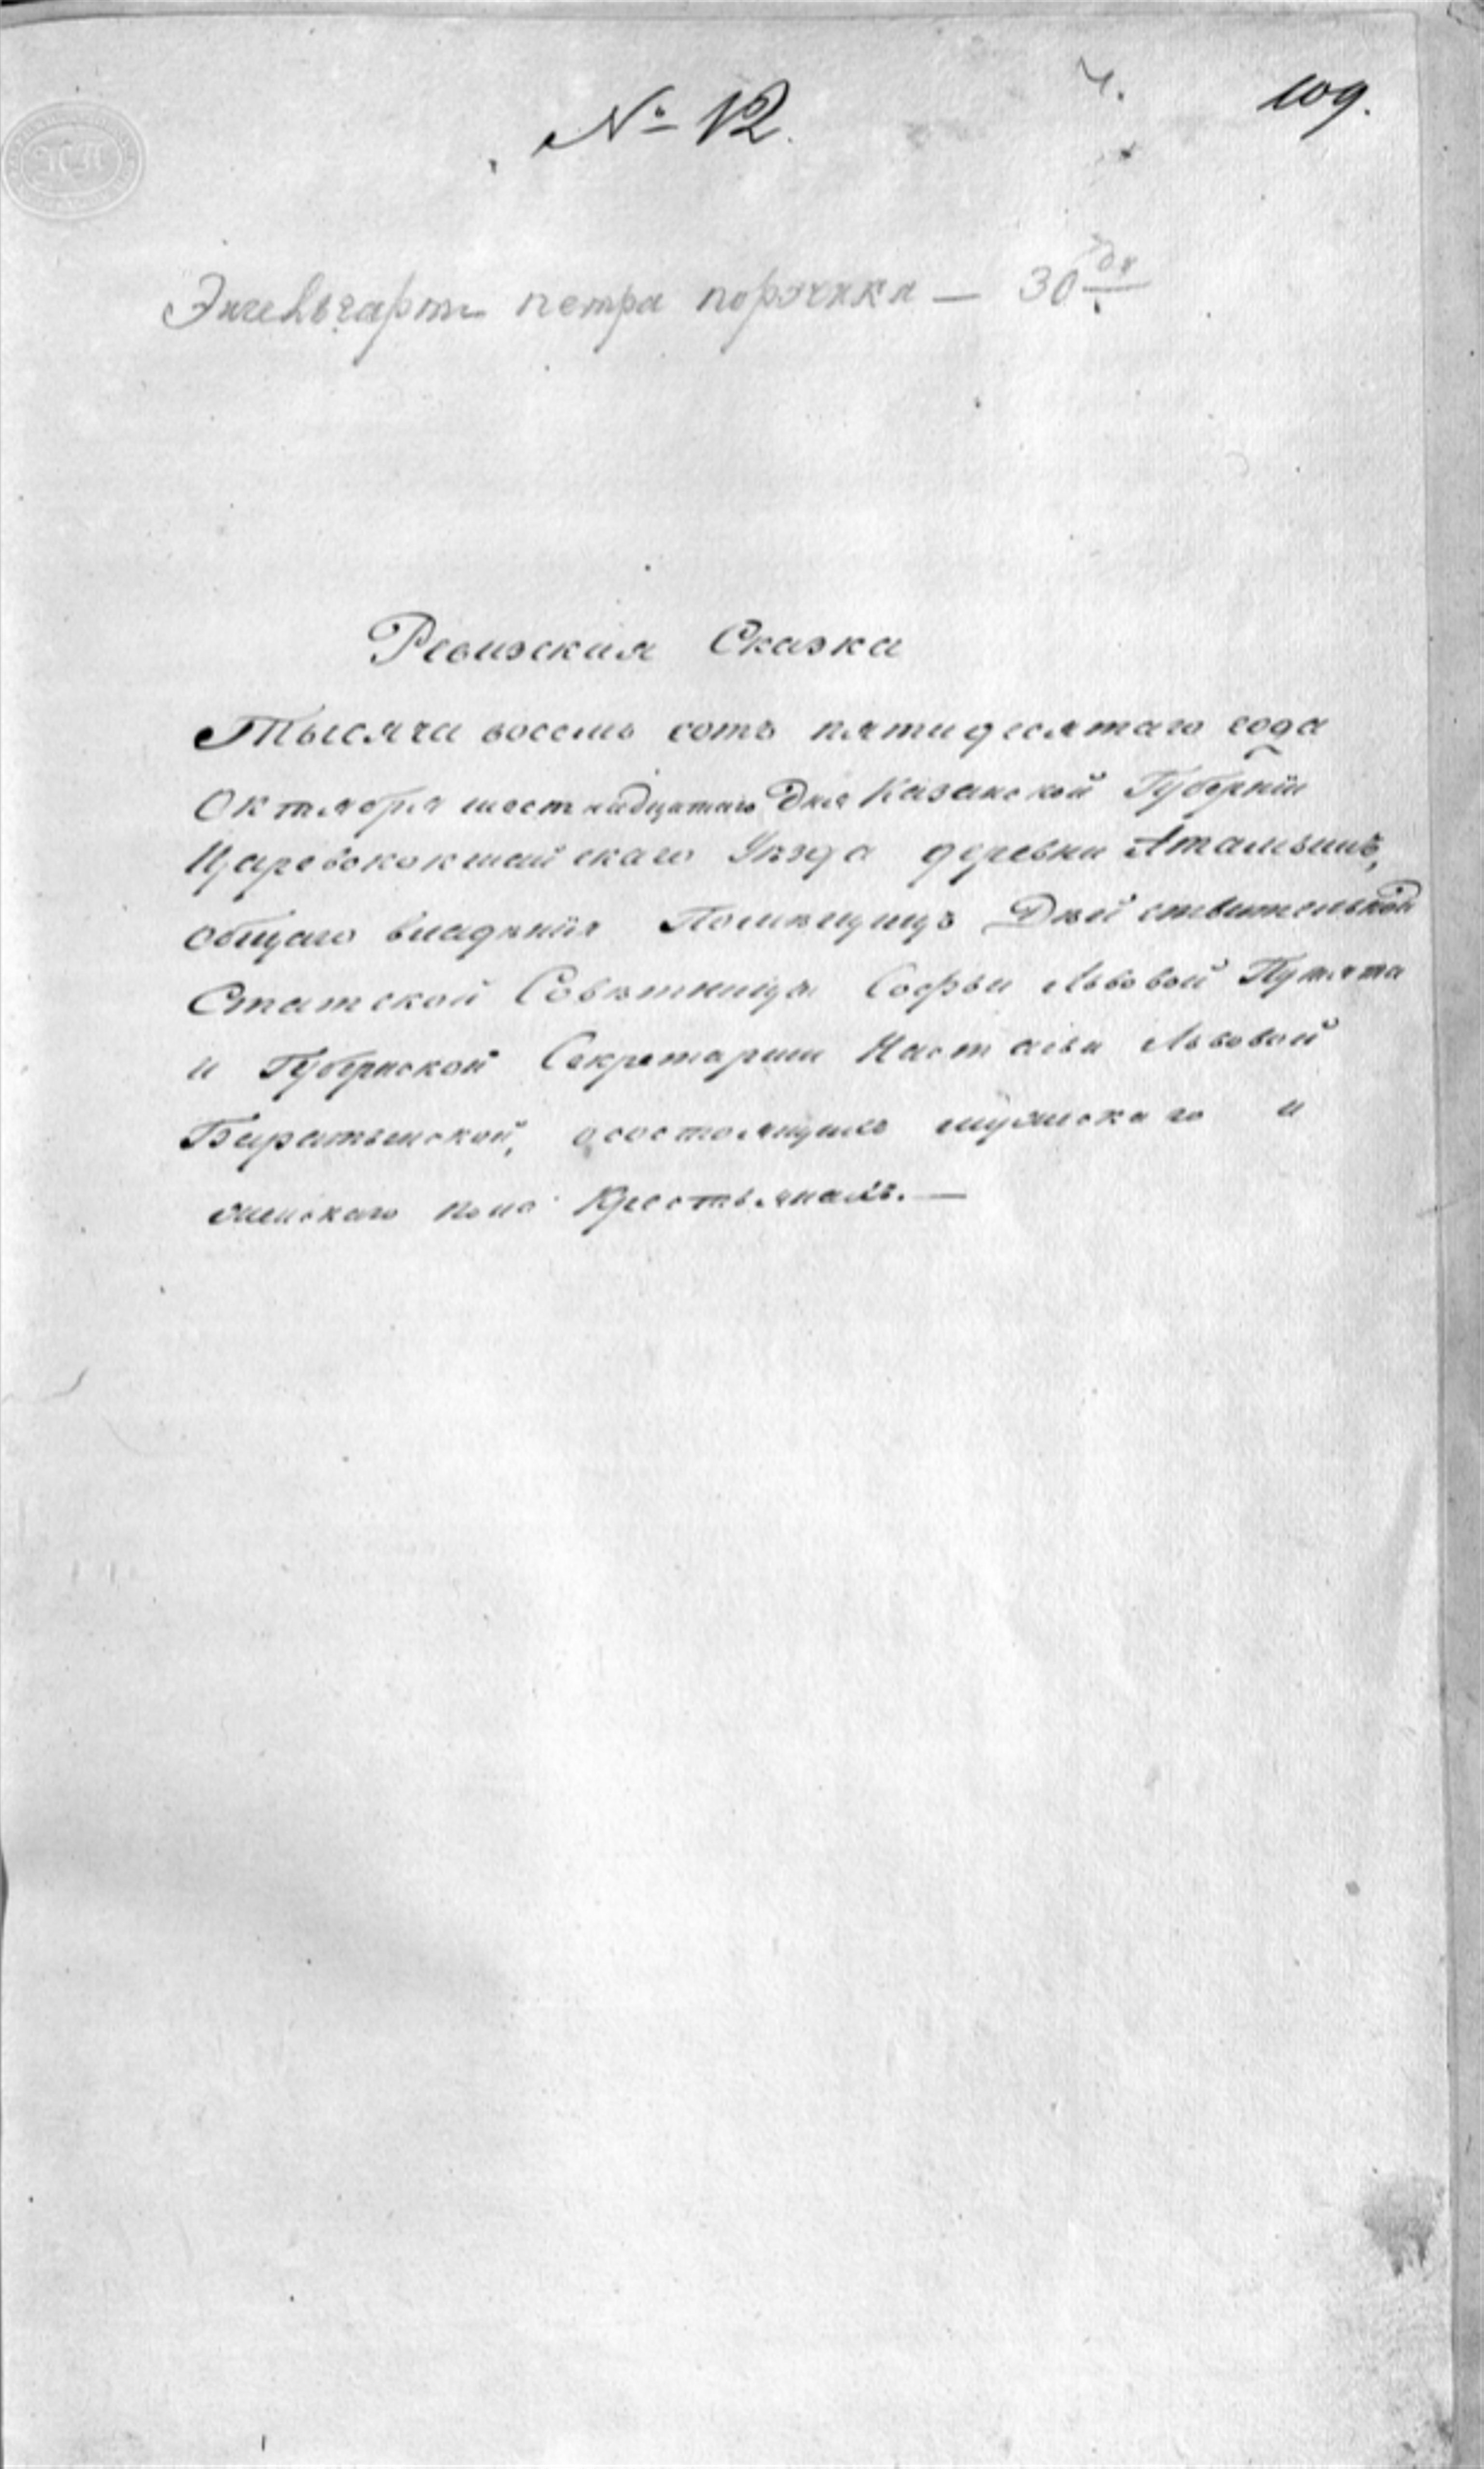 № 12.
109.
Энгельгарт петра поручика — 30
Ревизская Сказка
Тысяча восемь сотъ пятидесятаго года
Октября шестнадцатаго Дня Казанской Губерніи
Царевококшайскаго Уѣзда деревни
общаго владѣнія Помѣщицъ Дѣйствительной
Статской Совѣтницы Софьи Львовой Путята
и Губернской Секретарши Настасьи Львовой
Баратынской, о состоящихъ мужскаго и
женскаго пола Крестьянахъ. —